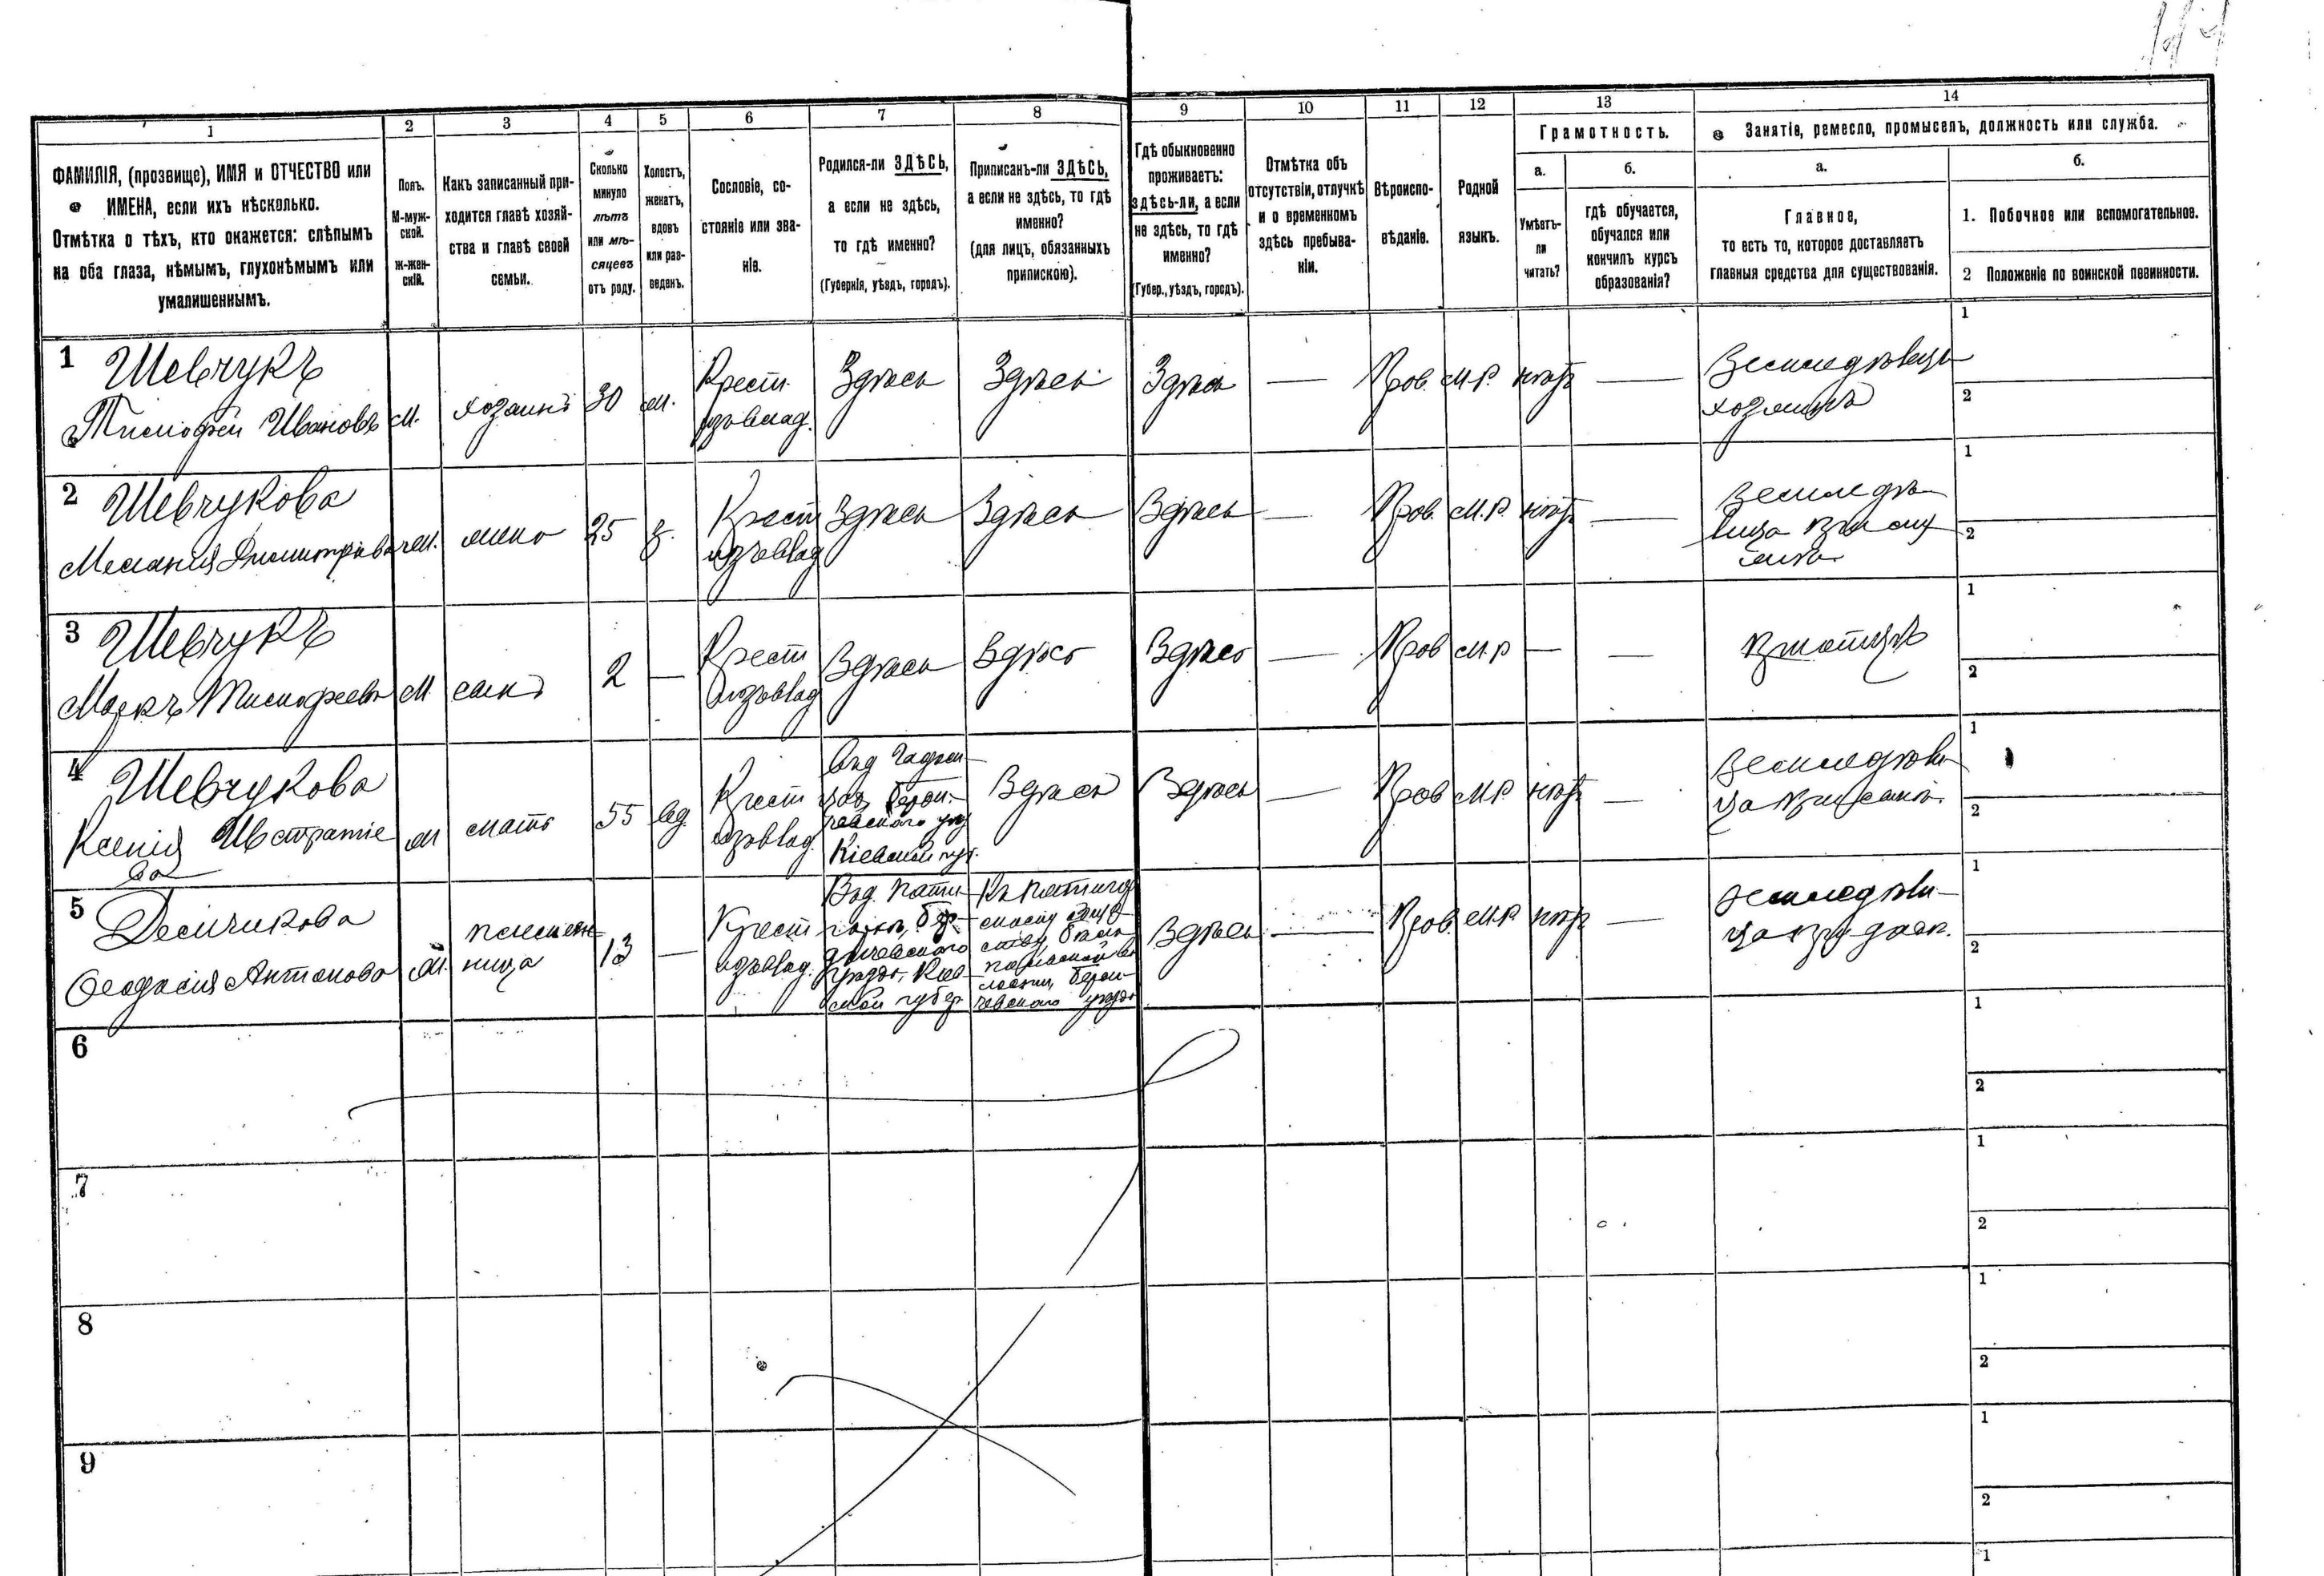 1 2 3 4 5 6 7 8 9 10 11 12 13 14
ФАМИЛІЯ, (прозвище), ИМЯ и ОТЧЕСТВО или
ИМЕНА, если ихъ нѣсколько.
Отмѣтка о тѣхъ, кто окажется: слѣпымъ
на оба глаза, нѣмымъ, глухонѣмымъ или
умалишеннымъ.
Полъ.
М-муж-
ской.
Ж-жен-
скій.
Какъ записанный при-
ходится главѣ хозяй-
ства и главѣ своей
семьи.
Сколько
минуло
лѣтъ
или мѣ-
сяцевъ
отъ роду.
Холостъ,
женатъ,
вдовъ
или раз-
веденъ.
Сословіе, со-
стояніе или зва-
ніе.
Родился-ли ЗДѢСЬ,
а если не здѣсь,
то гдѣ именно?
(Губернія, уѣздъ, городъ).
Приписанъ-ли ЗДѢСЬ,
а если не здѣсь, то гдѣ
именно?
(для лицъ, обязанныхъ
припискою).
Гдѣ обыкновенно
проживаетъ:
здѣсь-ли, а если
не здѣсь, то гдѣ
именно?
(Губер., уѣздъ, городъ).
Отмѣтка объ
отсутствіи, отлучкѣ
и о временномъ
здѣсь пребыва-
ніи.
Вѣроиспо-
вѣданіе.
Родной
языкъ.
Грамотность.
а.
Умѣетъ-
ли
читать?
б.
гдѣ обучается,
обучался или
кончилъ курсъ
образованія?
Занятіе, ремесло, промыселъ, должность или служба.
а.
Главное,
то есть то, которое доставляетъ
главныя средства для существованія.
б.
1. Побочное или вспомогательное.
2 Положеніе по воинской повинности.
1 Шевчукъ
Тимофей Ивановъ
М.
хозяинъ
30
ж.
Крест.
изъ влад.
Здѣсь
Здѣсь
Здѣсь
—
Прав.
М.Р.
нѣтъ
—
Земледѣлецъ
хозяинъ
1
2
2 Шевчукова
Меланія Димитріева
ж.
жена
25
з.
Крест
изъ влад
Здѣсь
Здѣсь
Здѣсь
—
Прав.
М.Р.
нѣтъ
—
Земледѣ-
лица при му
жѣ
1
2
3 Шевчукъ
Маркъ Тимофеевъ
М
сынъ
2
—
Крест
изъ влад
Здѣсь
Здѣсь
Здѣсь
—
Прав
М.Р
—
—
При отцѣ
1
2
4 Шевчукова
Ксенія Истратіе
ва
ж
мать
55
вд.
Крест
изъ влад.
Берди-
чевскаго уѣз
Кіевской губ.
Здѣсь
Здѣсь
—
Прав
М.Р.
нѣтъ
—
Земледѣли-
ца при сынѣ.
1
2
5 Демчикова
Ѳеодосія Антонова
ж.
племен-
ница
13
—
Крест
изъ влад.
Бер-
дичевскаго
уѣзда, Кіев-
ской губер
волости, Берди-
чевскаго уѣзда
Здѣсь
—
Прав.
М.Р.
нѣтъ
—
Земледѣли-
ца при дядѣ.
1
2
6
1
2
7
1
2
8
1
2
9
1
2
1